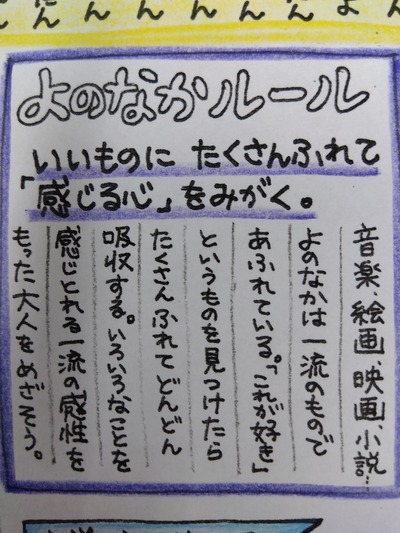 よのなかルール
いいものに たくさんふれて
「感じる心」をみがく。
音楽、絵画、映画、小説…
よのなかは一流のもので
あふれている。「これが好き」
というものを見つけたら
たくさんふれてどんどん
吸収する。いろいろなことを
感じとれる一流の感性を
もった大人をめざそう。